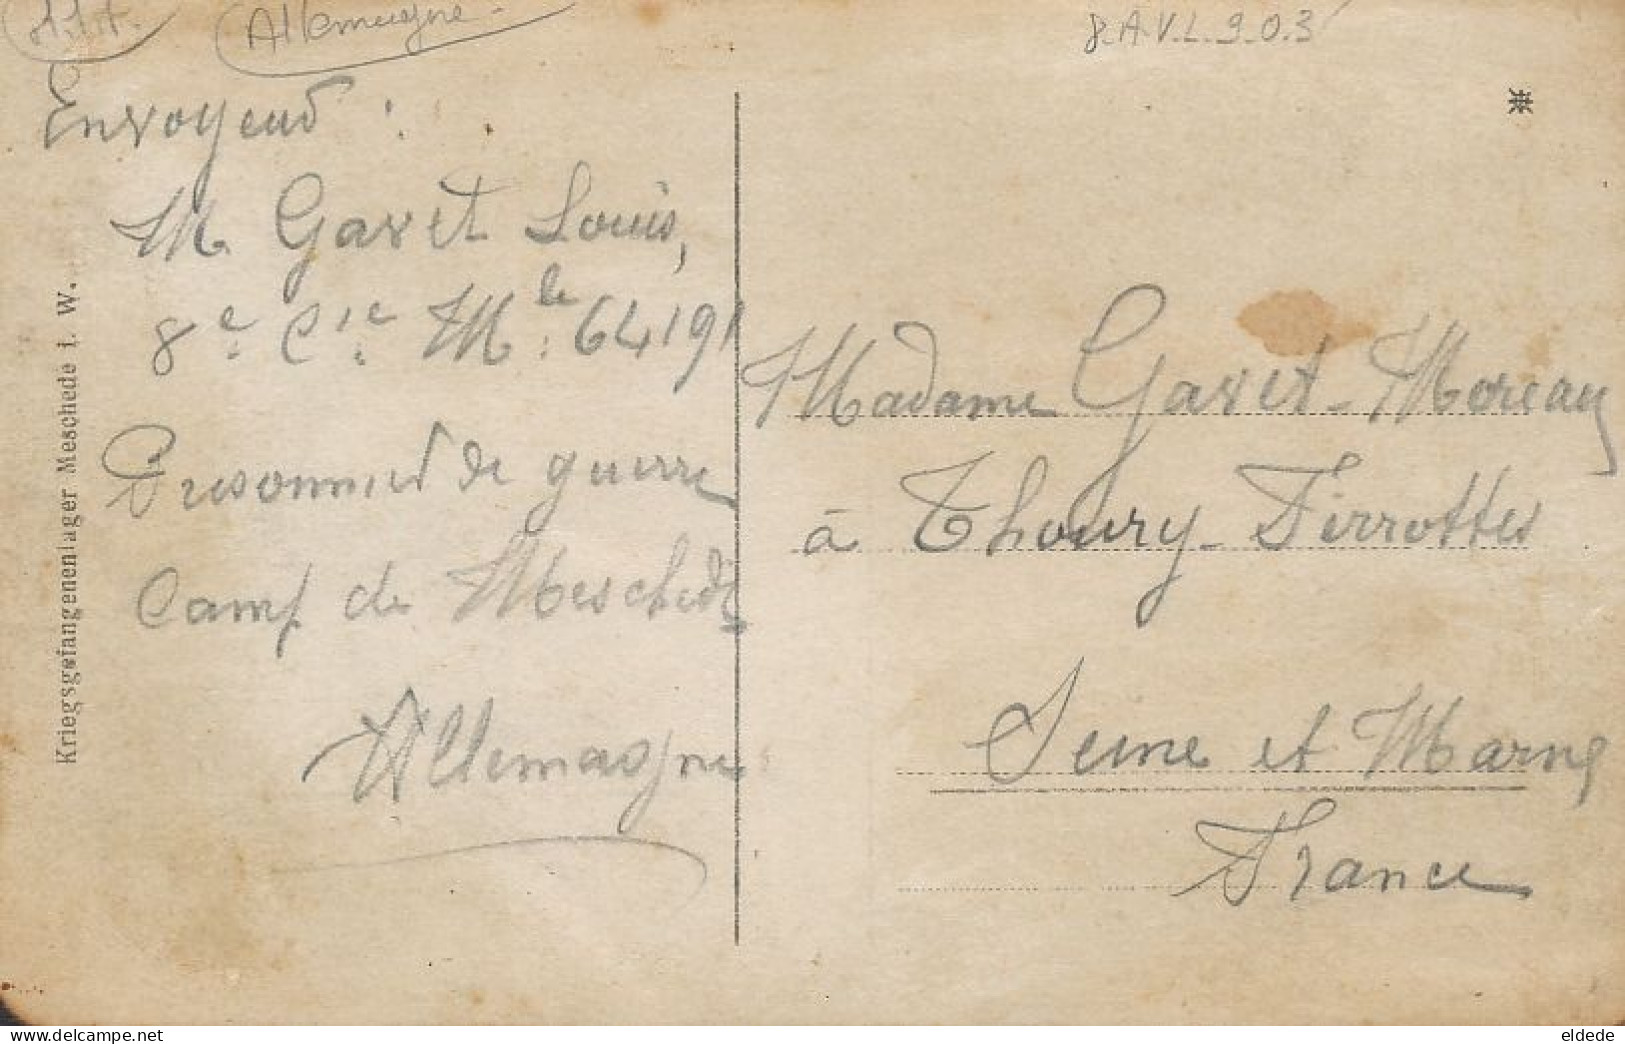 Allemagne
8.A.V.L.9.03
Envoyeur :
M. Gavet Louis,
8e Cie Mle : 64191
Prisonnier de guerre
Camp de Meschede
Allemagne
Kriegsgefangenenlager Meschede i. W.
Madame Gavet-Moreau
à Thoury-Férrottes
Seine et Marne
France
www.delcampe.net
eldede